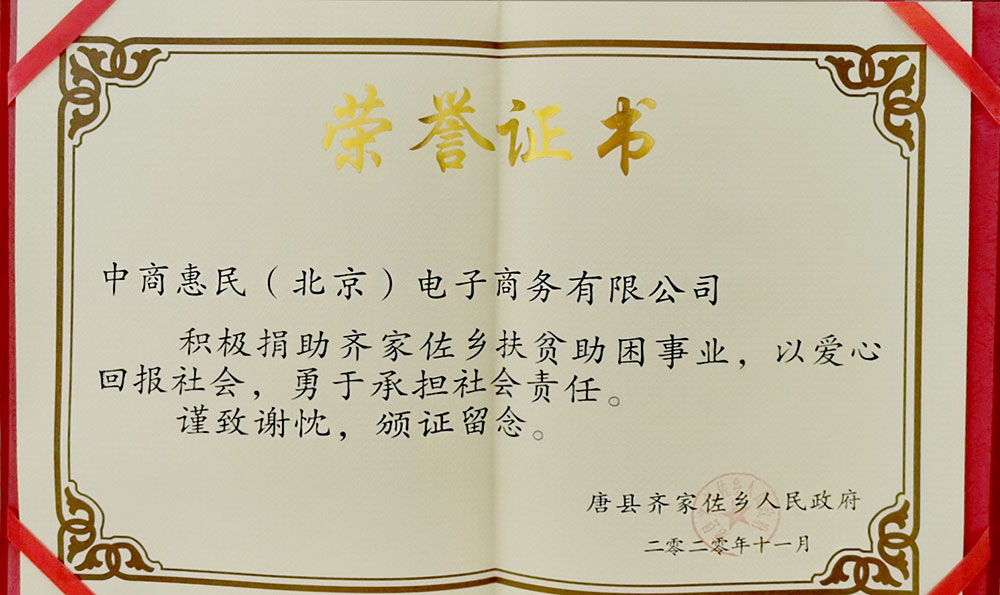 荣誉证书
中商惠民（北京）电子商务有限公司
积极捐助齐家佐乡扶贫助困事业，以爱心
回报社会，勇于承担社会责任。
谨致谢忱，颁证留念。
唐县齐家佐乡人民政府
二零二零年十一月